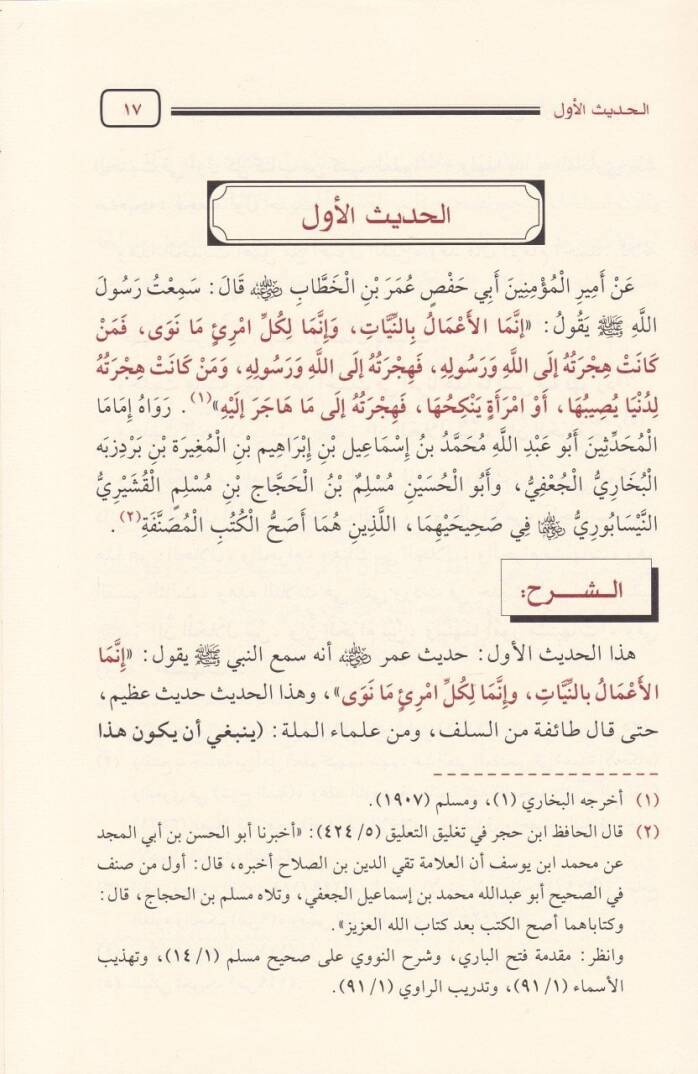 الحديث الأول
١٧
الحديث الأول
عَنْ أَمِيرِ الْمُؤْمِنِينَ أَبِي حَفْصٍ عُمَرَ بْنِ الْخَطَّابِ رضي الله عنه قَالَ: سَمِعْتُ رَسُولَ
اللَّهِ ﷺ يَقُولُ: «إِنَّمَا الأَعْمَالُ بِالنِّيَّاتِ، وَإِنَّمَا لِكُلِّ امْرِئٍ مَا نَوَى، فَمَنْ
كَانَتْ هِجْرَتُهُ إلَى اللَّهِ وَرَسُولِهِ، فَهِجْرَتُهُ إلَى اللَّهِ وَرَسُولِهِ، وَمَنْ كَانَتْ هِجْرَتُهُ
لِدُنْيَا يُصِيبُهَا، أَوْ امْرَأَةٍ يَنْكِحُهَا، فَهِجْرَتُهُ إلَى مَا هَاجَرَ إلَيْهِ»(١). رَوَاهُ إِمَامَا
الْمُحَدِّثِينَ أَبُو عَبْدِ اللَّهِ مُحَمَّدُ بنُ إِسْمَاعِيل بْنِ إِبْرَاهِيم بْنِ الْمُغِيرَة بْنِ بَرْدِزبَه
الْبُخَارِيُّ الْجُعْفِيُّ، وَأَبُو الْحُسَيْنِ مُسْلِمٌ بْنُ الْحَجَّاج بْنِ مُسْلِمٍ الْقُشَيْرِيُّ
النَّيْسَابُورِيُّ رضي الله عنهما فِي صَحِيحَيْهِمَا، اللَّذِينِ هُمَا أَصَحُّ الْكُتُبِ الْمُصَنَّفَةِ(٢).
الـشـــرح:
هذا الحديث الأول: حديث عمر رضي الله عنه أنه سمع النبي ﷺ يقول: «إِنَّمَا
الأَعْمَالُ بالنِّيَّاتِ، وإِنَّمَا لِكُلِّ امْرِئٍ مَا نَوَى»، وهذا الحديث حديث عظيم،
حتى قال طائفة من السلف، ومن علماء الملة: (ينبغي أن يكون هذا
(١) أخرجه البخاري (١)، ومسلم (١٩٠٧).
(٢) قال الحافظ ابن حجر في تغليق التعليق (٤٢٤/٥): «أخبرنا أبو الحسن بن أبي المجد
عن محمد ابن يوسف أن العلامة تقي الدين بن الصلاح أخبره، قال: أول من صنف
في الصحيح أبو عبدالله محمد بن إسماعيل الجعفي، وتلاه مسلم بن الحجاج، قال:
وكتاباهما أصح الكتب بعد كتاب الله العزيز».
وانظر: مقدمة فتح الباري، وشرح النووي على صحيح مسلم (١٤/١)، وتهذيب
الأسماء (٩١/١)، وتدريب الراوي (٩١/١).